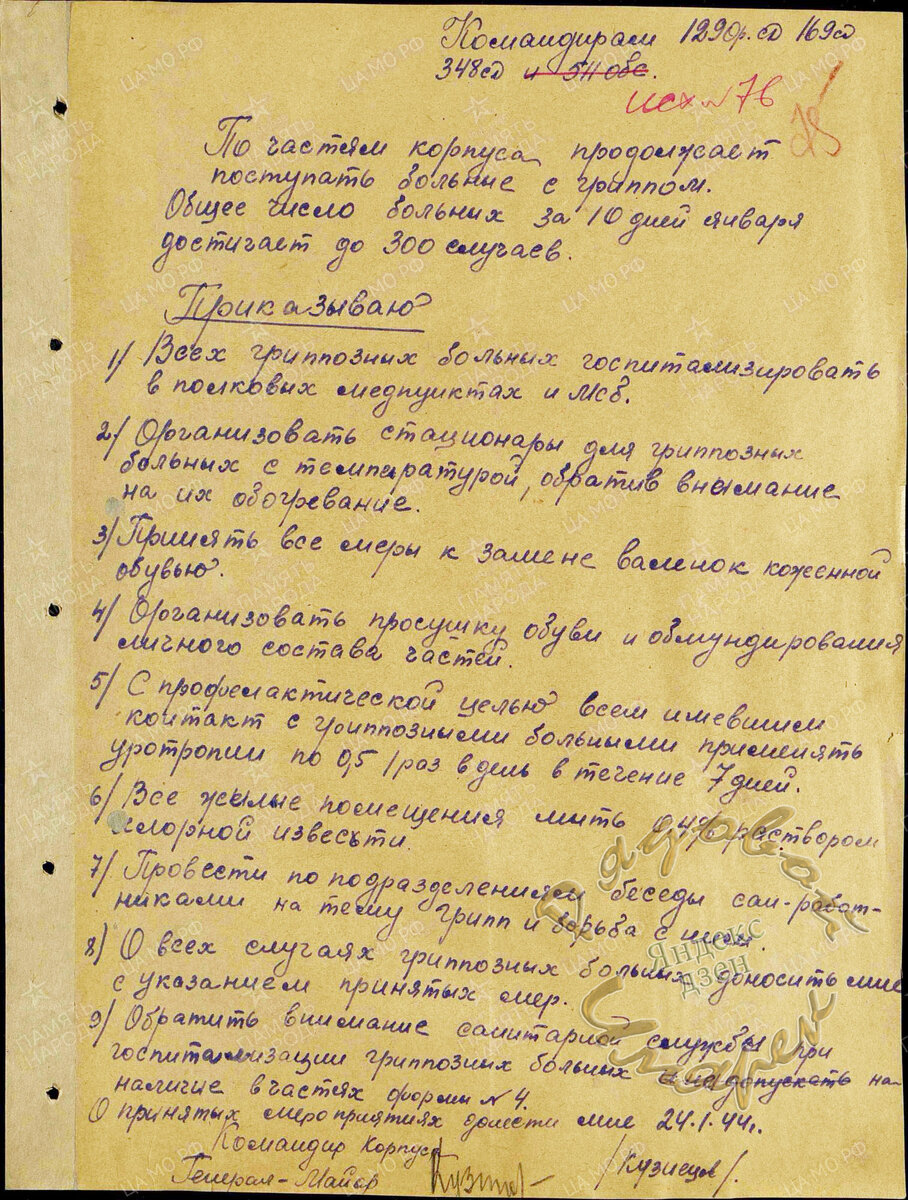 Командирам 129 ор.сд 169сд
348сд и 511 обс.
исх № 76
По частям корпуса продолжает
поступать больные с гриппом.
Общее число больных за 10 дней января
достигает до 300 случаев.
Приказываю
1/ Всех гриппозных больных госпитализировать
в полковых медпунктах и Мсб.
2/ Организовать стационары для гриппозных
больных с температурой, обратив внимание
на их обогревание.
3/ Принять все меры к замене валенок коженной
обувью.
4/ Организовать просушку обуви и обмундирования
личного состава частей.
5/ С профелактической целью всем имевшим
контакт с гриппозными больными применять
уротропин по 0,5 1 раз в день в течение 7 дней.
6/ Все жилые помещения мыть раствором
хлорной извесьти.
7/ Провести по подразделениям беседы сан-работ-
никами на тему грипп и борьба с ним.
8/ О всех случаях гриппозных больных доносить мне
с указанием принятых мер.
9/ Обратить внимание санитарной службы при
госпитализации гриппозных больных и не допускать на-
наличие в частях формы № 4.
О принятых мероприятиях донести мне 24.1.44г.
Командир Корпуса
Генерал-Майор /Кузнецов/
Яндекс
дзен
ЦА МО РФ
ПАМЯТЬ
НАРОДА